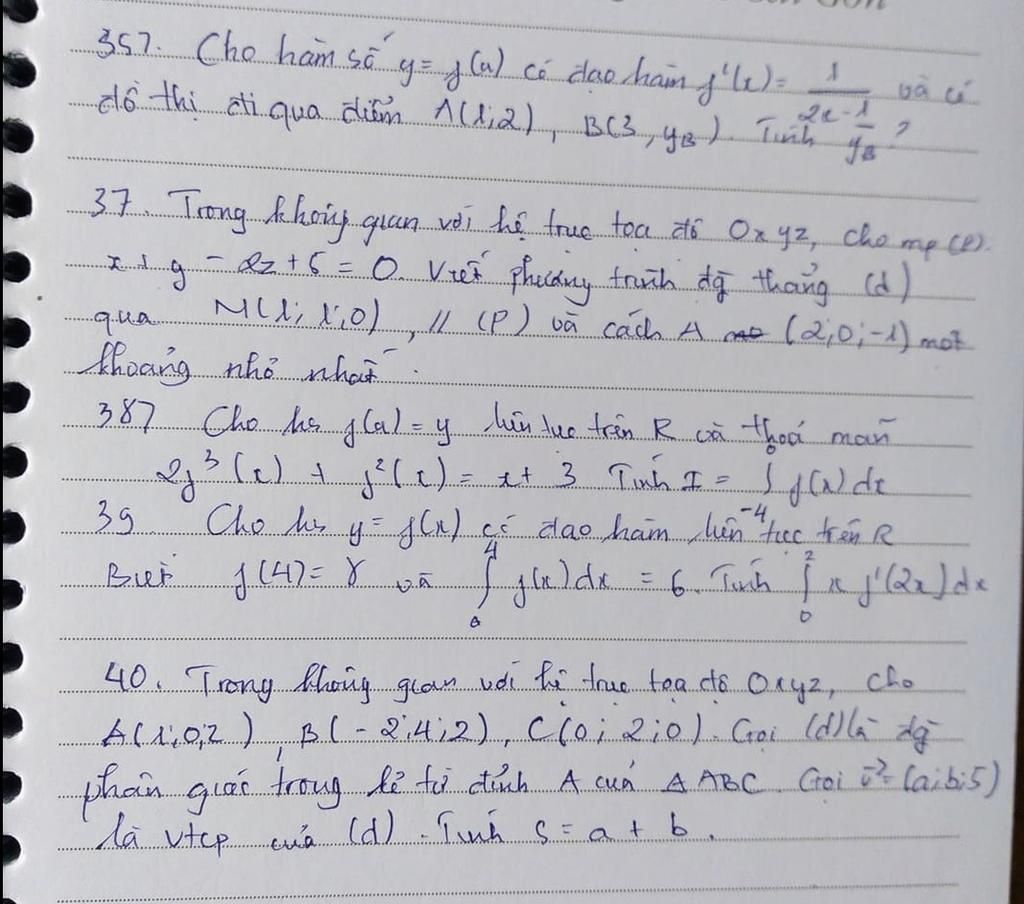 357. Cho hàm số y = f(x) có đạo hàm f'(x) = 1/(2x-1) và có
đồ thị đi qua điểm A(1;2), B(3, yB). Tính 1/yB ?
37. Trong không gian với hệ trục tọa độ Oxyz, cho mp (P).
x + y - 2z + 5 = 0. Viết phương trình đg thẳng (d)
qua M(1; 1; 0), // (P) và cách A (2;0;-1) một
khoảng nhỏ nhất.
387 Cho hs f(x) = y liên tục trên R và thỏa mãn
2f³(x) + f²(x) = x + 3 Tính I = ∫₋₄⁰ f(x) dx
39 Cho hs y = f(x) có đạo hàm liên tục trên R
Biết f(4) = 8 và ∫₀⁴ f(x) dx = 6. Tính ∫₀² x f'(2x) dx
40. Trong không gian với hệ trục tọa độ Oxyz, cho
A(1;0;2), B(-2;4;2), C(0; 2;0). Gọi (d) là đg
phân giác trong kẻ từ đỉnh A của Δ ABC. Gọi u⃗ = (a;b;5)
là vtcp của (d). Tính S = a + b.